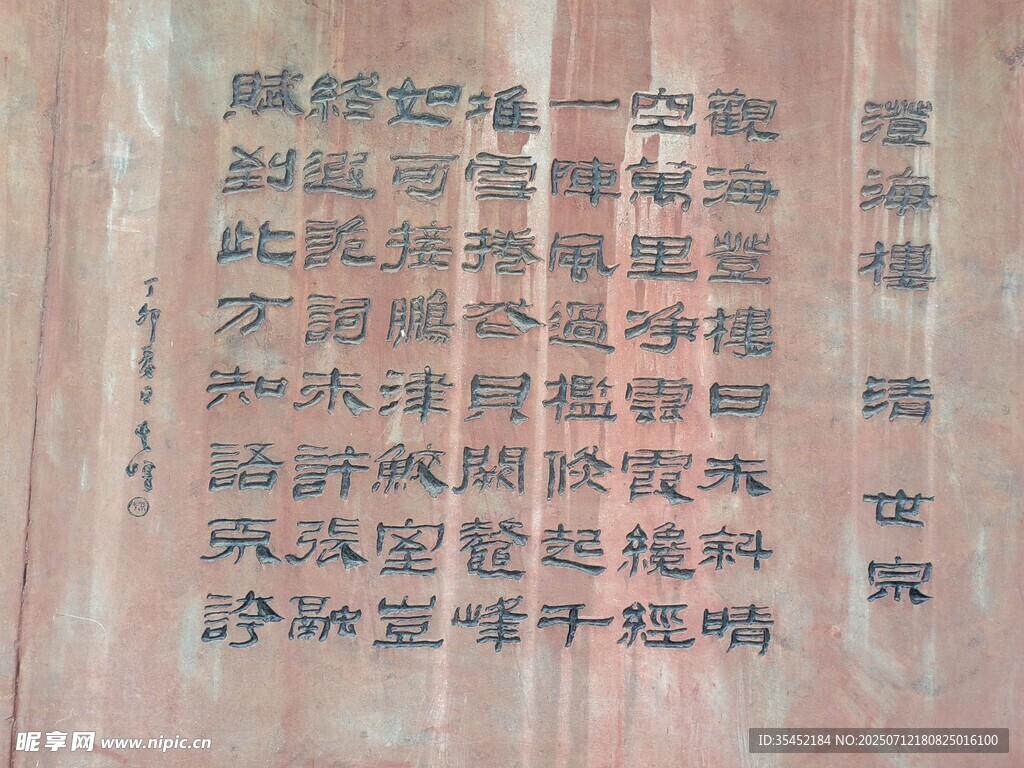 澄海樓 清 世宗
觀海登樓日未斜晴
空萬里净雲霞纔經
一陣風過檻倐起千
堆雪捲貝闕鼇峰
如可接鵬津鮫室豈
終遐詞未許張融
賦到此方知語誇
丁卯春日
昵享网 www.nipic.cn
ID:35452184 NO:20250712180825016100